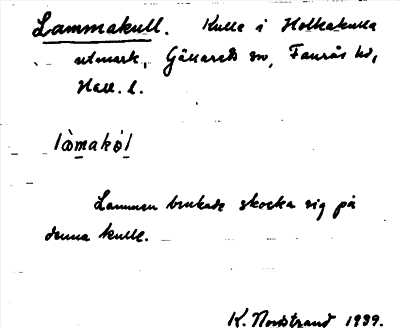 Lammakull. Kulle i Holkakulla
utmark, Gällareds sn, Faurås hd,
Hall. l.
làmakọl
Lammen brukade skocka sig på
denna kulle.
K. Nordstrand 1939.